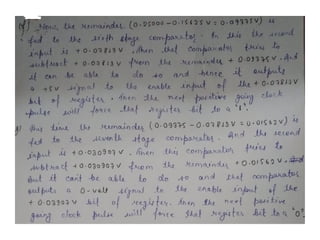 Now the remainder (0.25000 - 0.15625 V = 0.09375 V) is
fed to the sixth stage comparator. In this the second
input is +0.07813 V, then that comparator tries to
subtract +0.07813 V from the remainder +0.09375 V. And
it can be able to do so and hence it outputs
a +5V signal to the enable input of the +0.07813 V
bit of register. then the next positive going clock
pulse will force that register bit to a '1'.
this time the remainder (0.09375 - 0.07813 V = 0.01562 V) is
fed to the seventh stage comparator. And the second
input is +0.03907 V, then this comparator tries to
subtract +0.03907 V from the remainder +0.01562 V.
But it can't be able to do so and that comparator
outputs a 0-volt signal to the enable input of the
+0.03907 V bit of register. then the next positive
going clock pulse will force that register bit to a '0'.